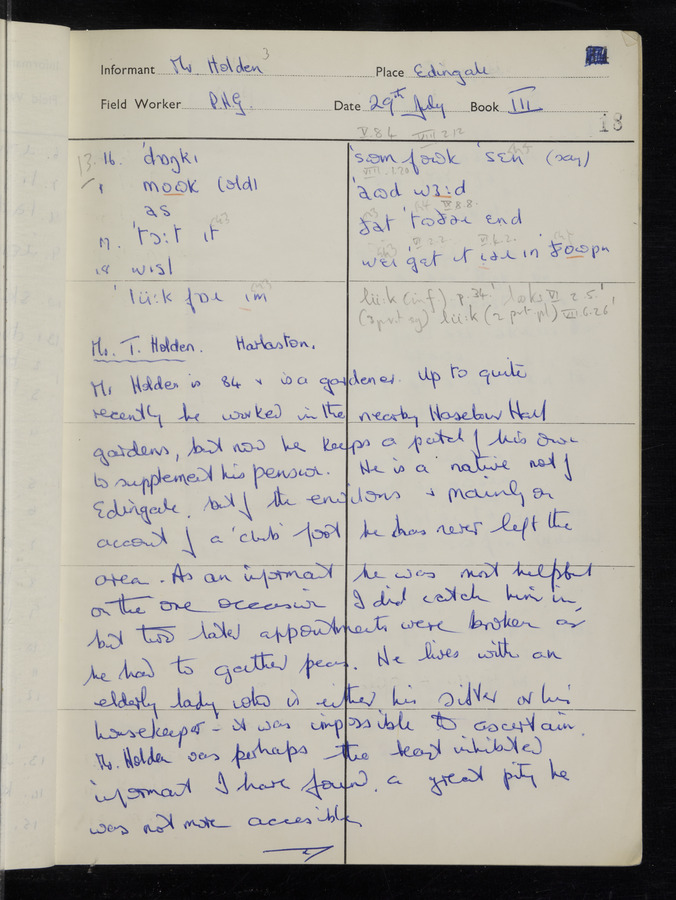 Informant Mr. Holden 3 Place Edingale
Field Worker P.H.G. Date 29th July Book III
18
V.8.4 VIII.2.12
13. 16. 'dɒgkɪ 'sɒm fɒʊk 'sɛn (say)
mɒʊk (old)
as
17. 'tɔːt ɪt
18 wɪsl
V.8.8.
VI.2.
liːk (inf) p.34. looks VI 2.5.
(3 pr.t sg) liːk (2 prt pl) VIII.6.26
Mr. T. Holden. Harlaston.
Mr Holden is 84 & is a gardener. Up to quite
recently he worked in the nearby Hall
gardens, but now he keeps a patch of his own
to supplement his pension. He is a native not of
Edingale, but of the environs & mainly on
account of a 'club' foot he has never left the
area. As an informant he was most helpful
on the one occasion I did catch him in,
but two later appointments were broken as
he had to gather peas. He lives with an
elderly lady who is either his sister or his
housekeeper - it was impossible to ascertain.
Mr. Holden was perhaps the least inhibited
informant I have found, a great pity he
was not more accessible